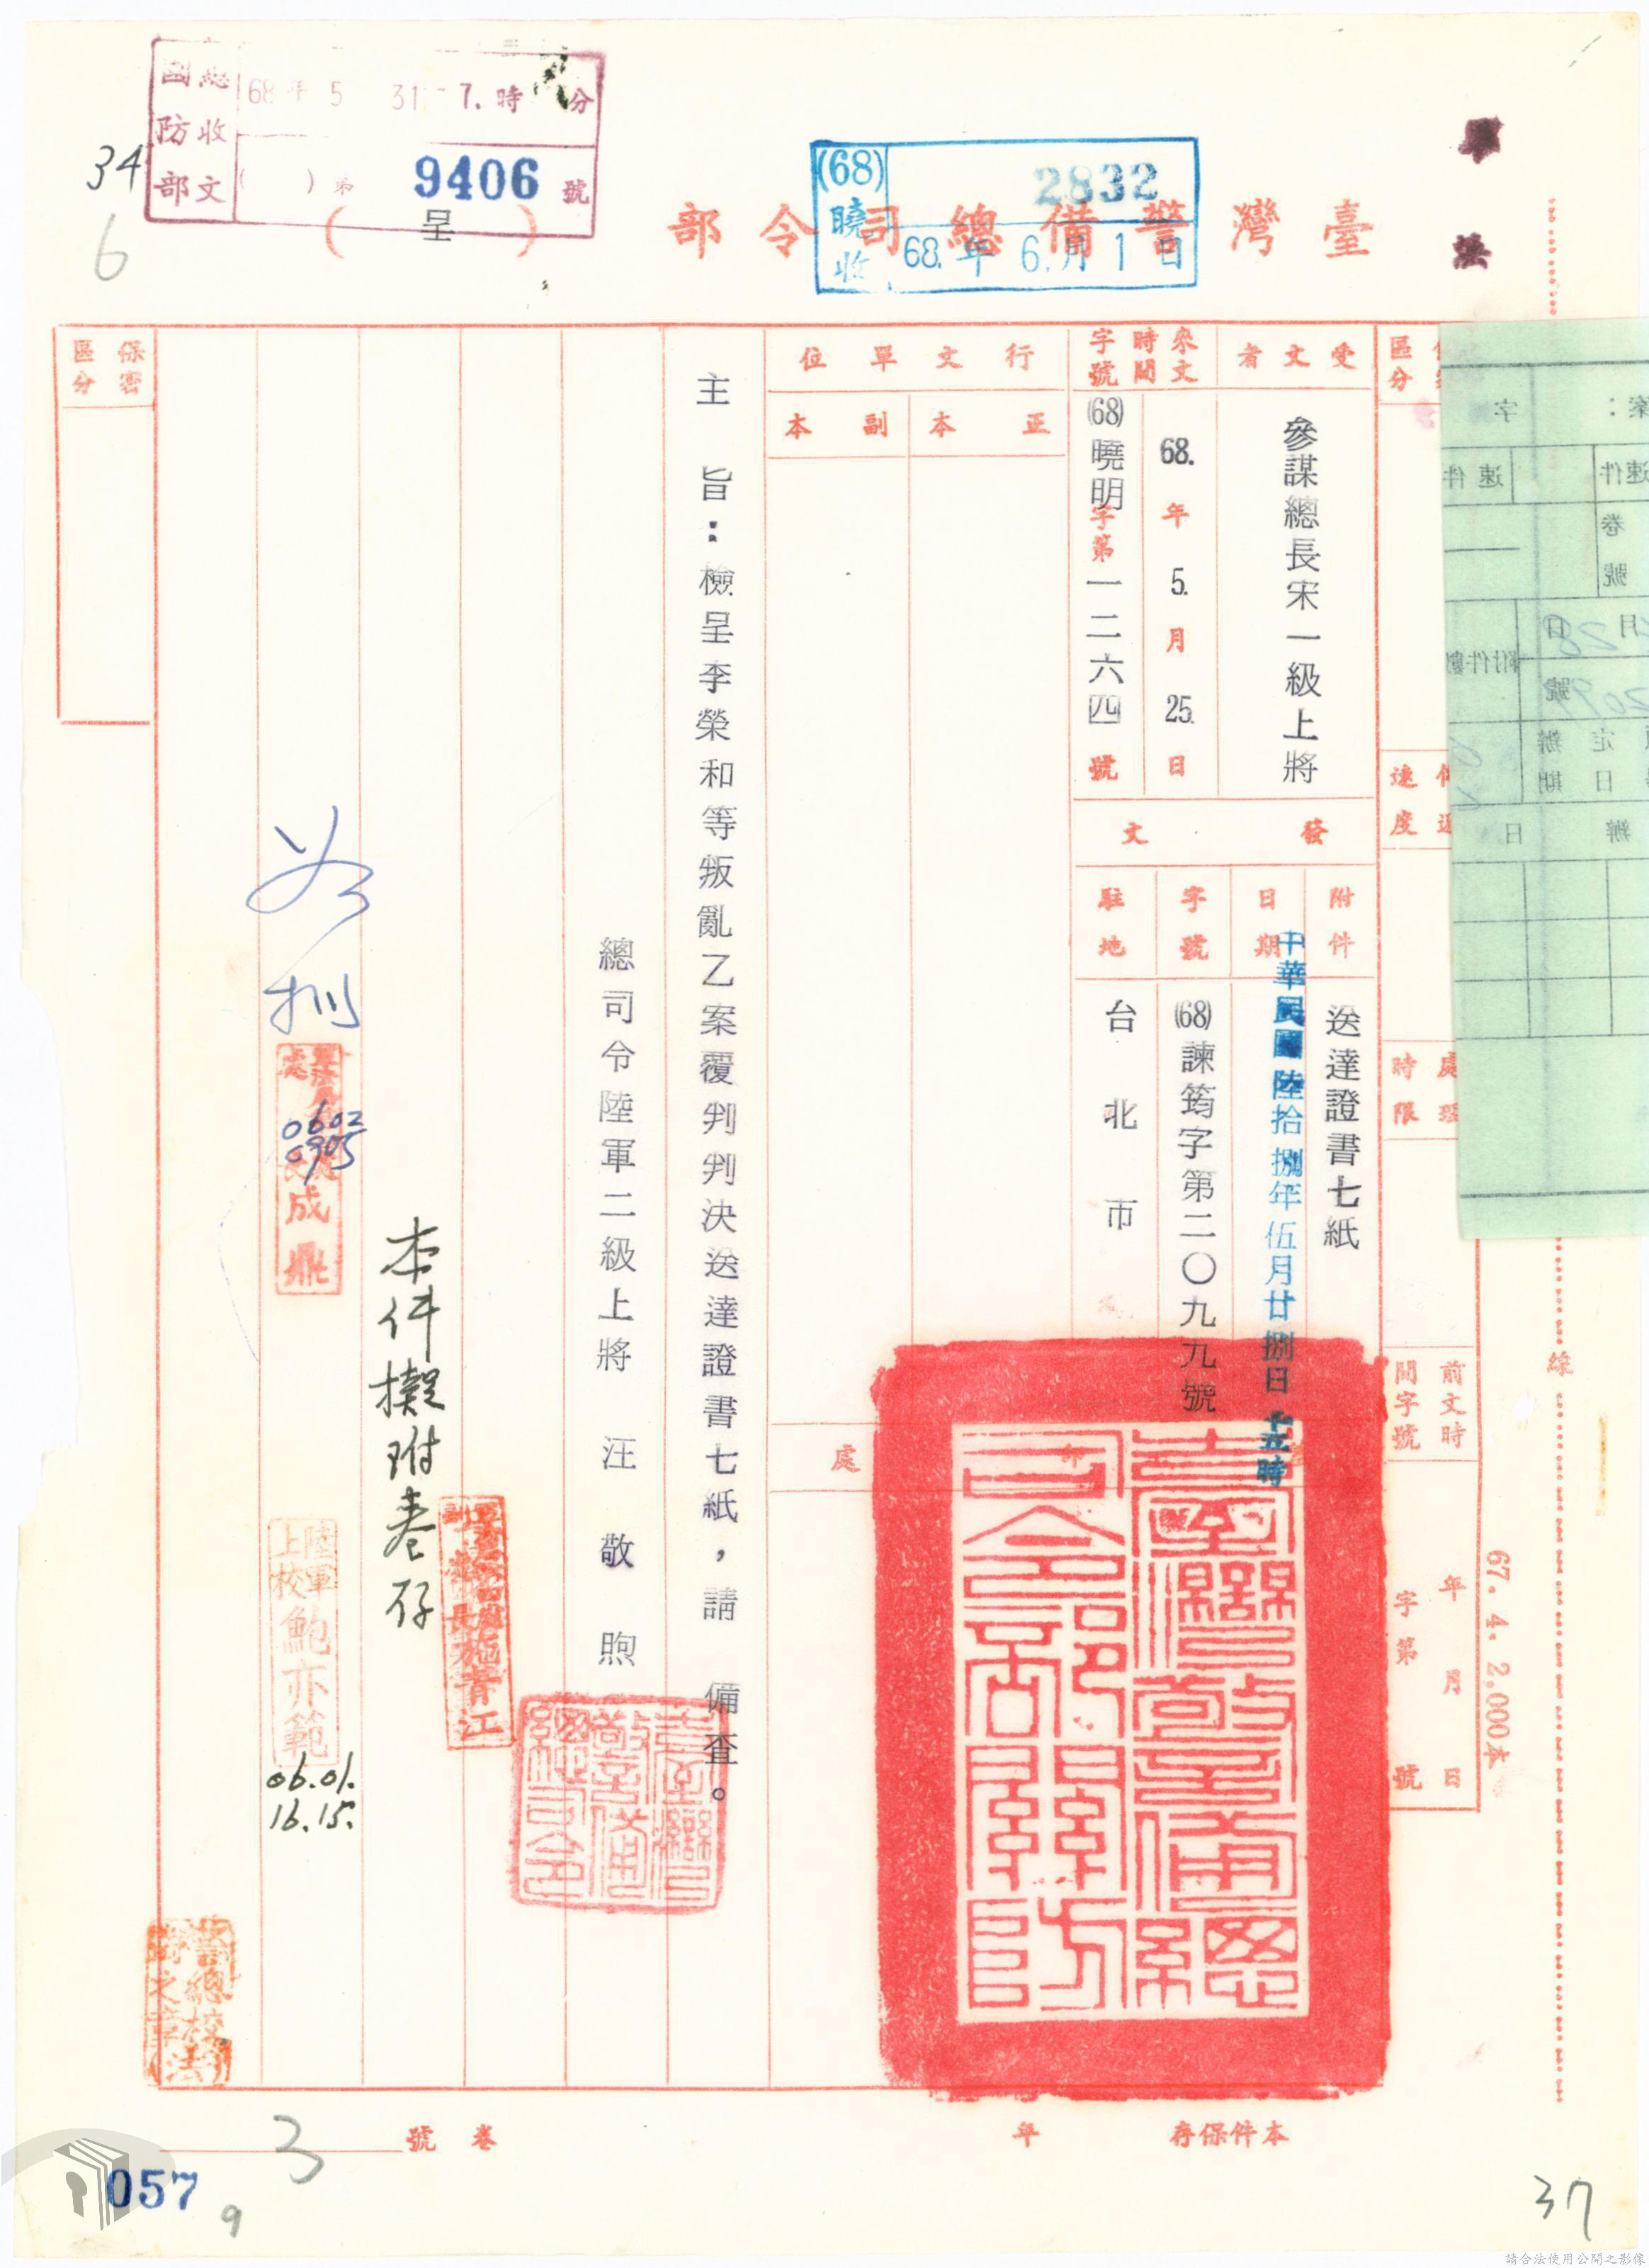 國防部
總收文
68年 5 31 7.時 分
( )第 9406 號
34
6
(68)曉收
2832
68.年 6.月 1日
軍法
臺灣警備總司令部
(呈)
受文者
參謀總長宋一級上將
來文時間
68.年5.月25.日
字號
(68)曉明字第一二六四號
行文單位
正本
副本
發文
附件
送達證書七紙
日期
中華民國陸拾捌年伍月廿捌日十五時
字號
(68)諫筠字第二〇九九號
駐地
台北市
速度
處理時限
前文時間字號
年月日
字第 號
保密區分
主旨：檢呈李榮和等叛亂乙案覆判判決送達證書七紙，請 備查。
總司令陸軍二級上將 汪敬煦
臺灣警備總司令部關防
臺灣警備總司令
施青江
本件擬附卷存
成鼎
0602
0905
陸軍上校鮑亦範
06.01.
16.15.
保密區分
67.4.2,000本
線
本件保存 年
卷號
3
057
9
37
請合法使用公開之影像